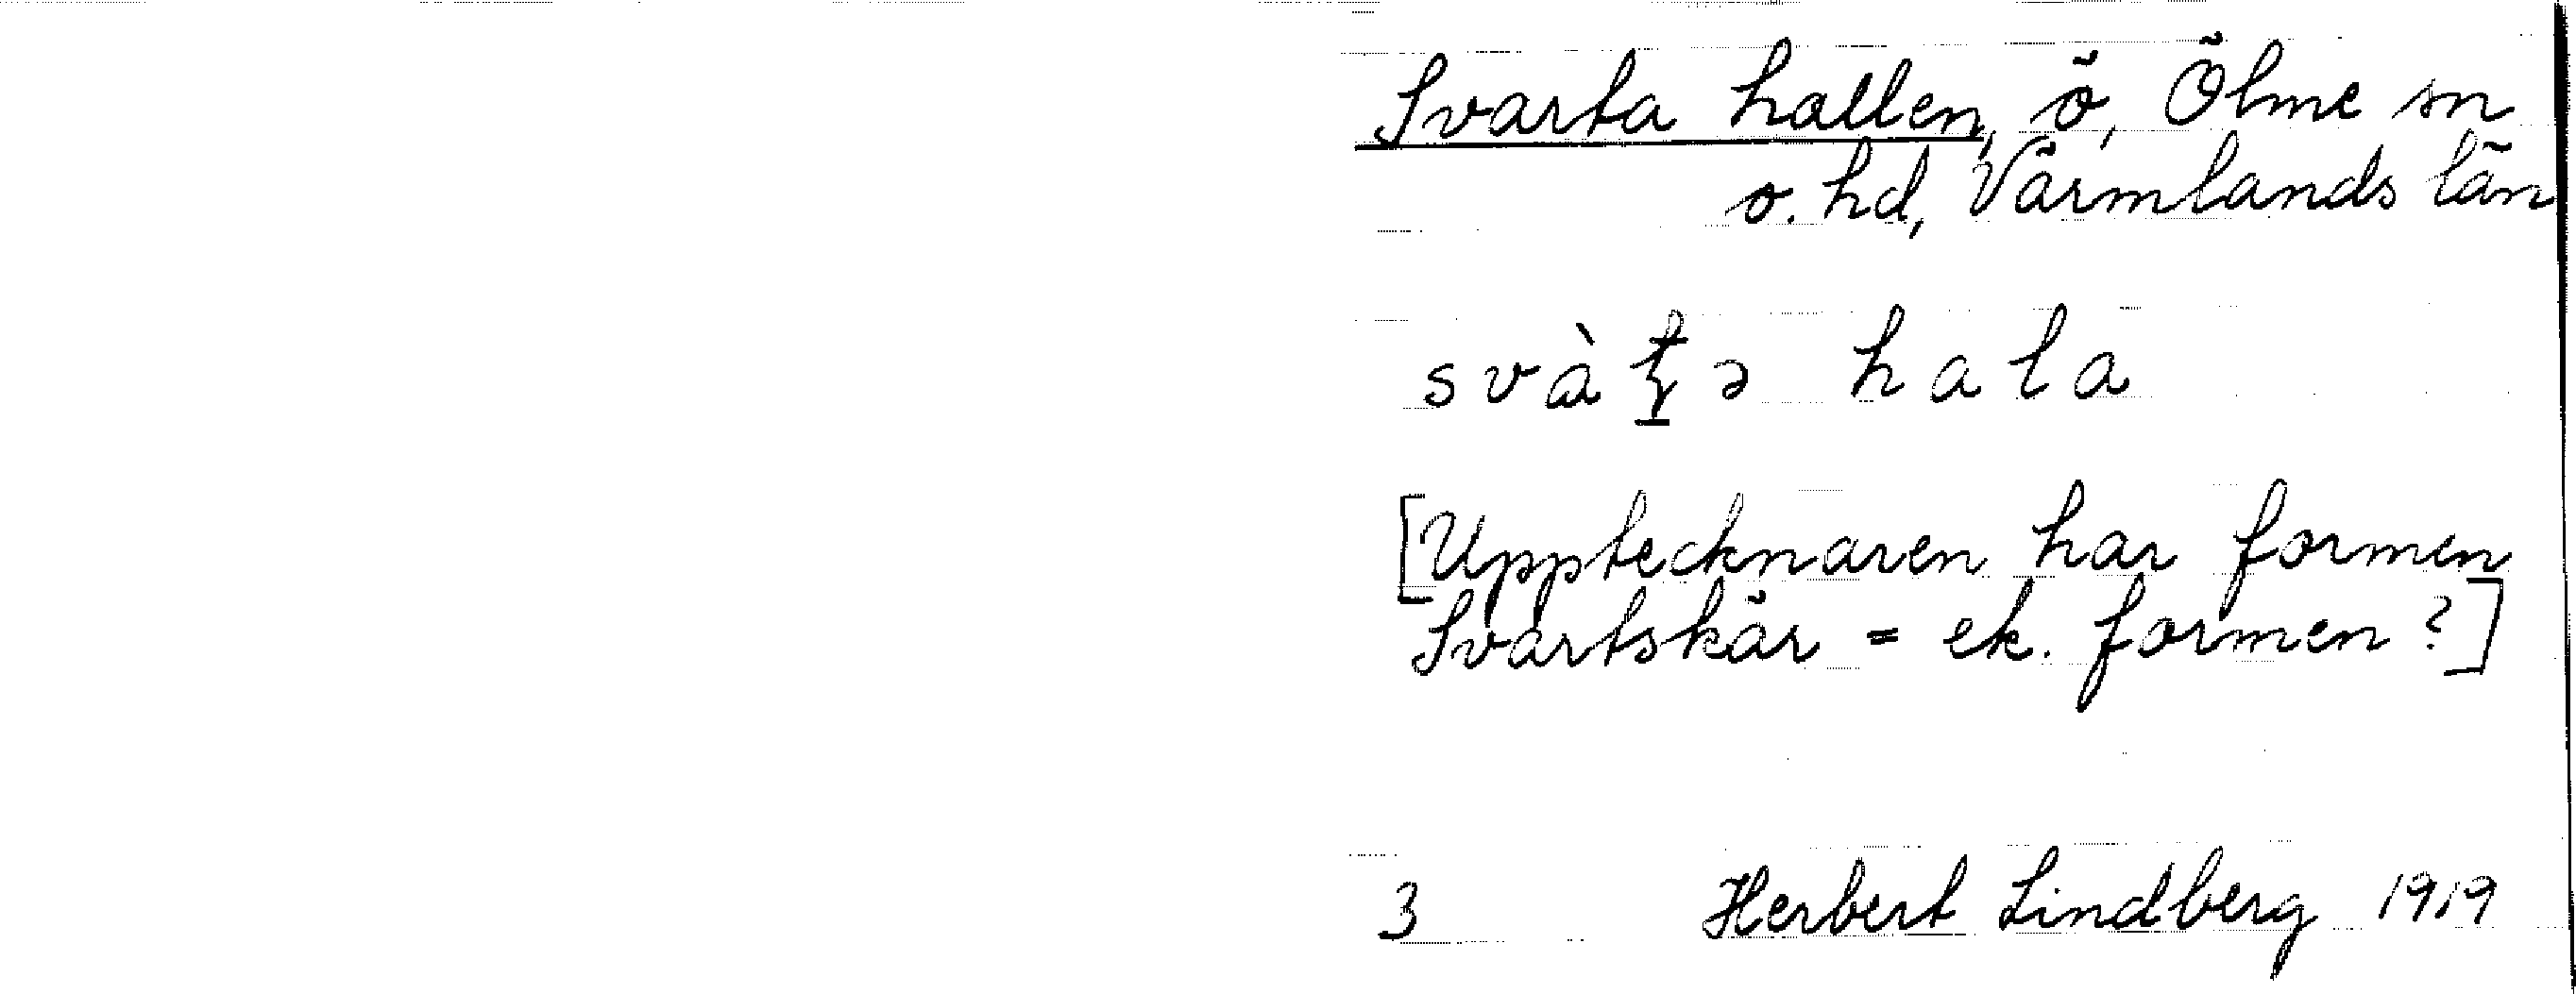 Svarta hallen, ö, Ölme sn
o. hd, Värmlands län
svàꞎə hala
[Upptecknaren har formen
Svartskär = ek. formen?]
3 Herbert Lindberg 1919